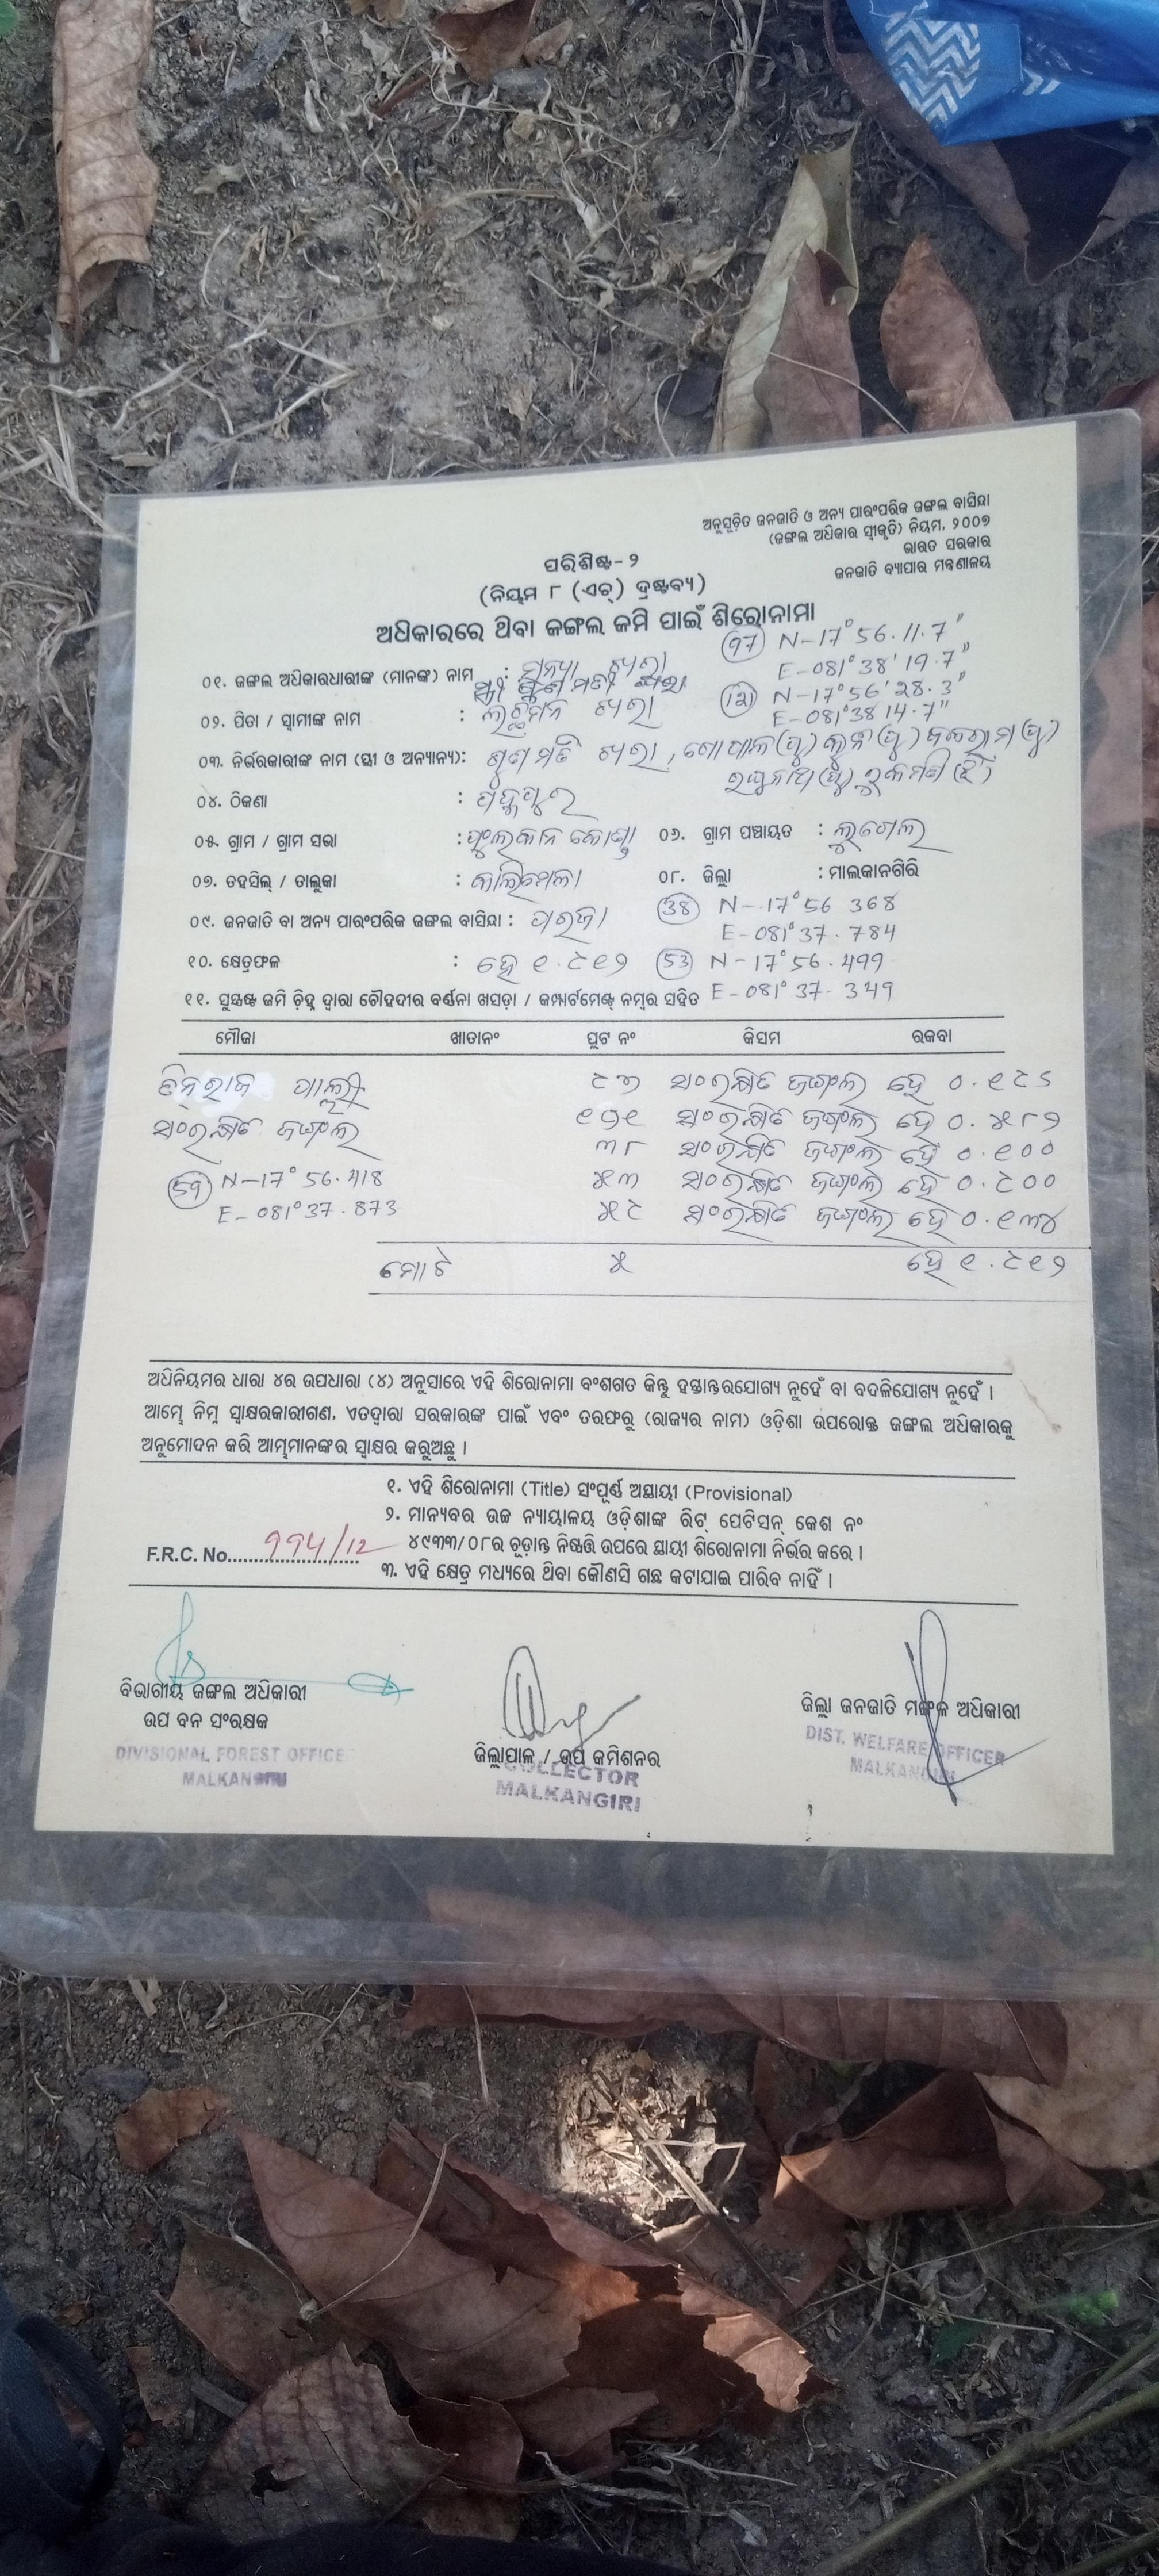 ଅନୁସୂଚିତ ଜନଜାତି ଓ ଅନ୍ୟ ପାରଂପରିକ ଜଙ୍ଗଲ ବାସିନ୍ଦା
(ଜଙ୍ଗଲ ଅଧିକାର ସ୍ୱୀକୃତି) ନିୟମ, ୨୦୦୭
ଭାରତ ସରକାର
ଜନଜାତି ବ୍ୟାପାର ମନ୍ତ୍ରଣାଳୟ
ପରିଶିଷ୍ଟ-୨
(ନିୟମ ୮ (ଏଚ୍) ଦ୍ରଷ୍ଟବ୍ୟ)
ଅଧିକାରରେ ଥିବା ଜଙ୍ଗଲ ଜମି ପାଇଁ ଶିରୋନାମା
(97) N-17°56.11.7"
E-081°38'19.7"
୦୧. ଜଙ୍ଗଲ ଅଧିକାରଧାରୀଙ୍କ (ମାନଙ୍କ) ନାମ :
(121) N-17°56'28.3"
E-081°38 14.7"
୦୨. ପିତା / ସ୍ୱାମୀଙ୍କ ନାମ :
୦୩. ନିର୍ଭରକାରୀଙ୍କ ନାମ (ସ୍ତ୍ରୀ ଓ ଅନ୍ୟାନ୍ୟ):
୦୪. ଠିକଣା :
୦୫. ଗ୍ରାମ / ଗ୍ରାମ ସଭା : ୦୬. ଗ୍ରାମ ପଞ୍ଚାୟତ :
୦୭. ତହସିଲ୍ / ତାଲୁକା : କାଲିମେଳା ୦୮. ଜିଲ୍ଲା : ମାଲକାନଗିରି
୦୯. ଜନଜାତି ବା ଅନ୍ୟ ପାରଂପରିକ ଜଙ୍ଗଲ ବାସିନ୍ଦା : ପରଜା
(38) N-17°56 368
E-081°37.784
୧୦. କ୍ଷେତ୍ରଫଳ : ହେ ୧.୯୧୨
(53) N-17°56.499
E-081°37.349
୧୧. ସୁସ୍ପଷ୍ଟ ଜମି ଚିହ୍ନ ଦ୍ୱାରା ଚୌହଦୀର ବର୍ଣ୍ଣନା ଖସଡ଼ା / କମ୍ପାର୍ଟମେଣ୍ଟ ନମ୍ବର ସହିତ
ମୌଜା ଖାତାନଂ ପ୍ଲଟ ନଂ କିସମ ରକବା
୯୭ ସଂରକ୍ଷିତ ଜଙ୍ଗଲ ହେ ୦.୧୯୬
ସଂରକ୍ଷିତ ଜଙ୍ଗଲ ୧୨୧ ସଂରକ୍ଷିତ ଜଙ୍ଗଲ ହେ ୦.୫୮୨
୩୮ ସଂରକ୍ଷିତ ଜଙ୍ଗଲ ହେ ୦.୧୦୦
(59) N-17°56.418 ୫୩ ସଂରକ୍ଷିତ ଜଙ୍ଗଲ ହେ ୦.୯୦୦
E-081°37.873 ୫୯ ସଂରକ୍ଷିତ ଜଙ୍ଗଲ ହେ ୦.୧୩୪
ମୋଟ ୫ ହେ ୧.୯୧୨
ଅଧିନିୟମର ଧାରା ୪ର ଉପଧାରା (୪) ଅନୁସାରେ ଏହି ଶିରୋନାମା ବଂଶଗତ କିନ୍ତୁ ହସ୍ତାନ୍ତରଯୋଗ୍ୟ ନୁହେଁ ବା ବଦଳିଯୋଗ୍ୟ ନୁହେଁ ।
ଆମ୍ଭେ ନିମ୍ନ ସ୍ୱାକ୍ଷରକାରୀଗଣ, ଏତଦ୍ଵାରା ସରକାରଙ୍କ ପାଇଁ ଏବଂ ତରଫରୁ (ରାଜ୍ୟର ନାମ) ଓଡ଼ିଶା ଉପରୋକ୍ତ ଜଙ୍ଗଲ ଅଧିକାରକୁ
ଅନୁମୋଦନ କରି ଆମ୍ଭମାନଙ୍କର ସ୍ୱାକ୍ଷର କରୁଅଛୁ ।
୧. ଏହି ଶିରୋନାମା (Title) ସଂପୂର୍ଣ୍ଣ ଅସ୍ଥାୟୀ (Provisional)
୨. ମାନ୍ୟବର ଉଚ୍ଚ ନ୍ୟାୟାଳୟ ଓଡ଼ିଶାଙ୍କ ରିଟ୍ ପେଟିସନ୍ କେଶ ନଂ
୪୯୩୩/୦୮ର ଚୂଡ଼ାନ୍ତ ନିଷ୍ପତ୍ତି ଉପରେ ସ୍ଥାୟୀ ଶିରୋନାମା ନିର୍ଭର କରେ ।
F.R.C. No.
୩. ଏହି କ୍ଷେତ୍ର ମଧ୍ୟରେ ଥିବା କୌଣସି ଗଛ କଟାଯାଇ ପାରିବ ନାହିଁ ।
ବିଭାଗୀୟ ଜଙ୍ଗଲ ଅଧିକାରୀ
ଉପ ବନ ସଂରକ୍ଷକ
DIVISIONAL FOREST OFFICE
MALKANGIRI
ଜିଲ୍ଲାପାଳ / ଉପ କମିଶନର
COLLECTOR
MALKANGIRI
ଜିଲ୍ଲା ଜନଜାତି ମଙ୍ଗଳ ଅଧିକାରୀ
DIST. WELFARE OFFICER
MALKANGIRI